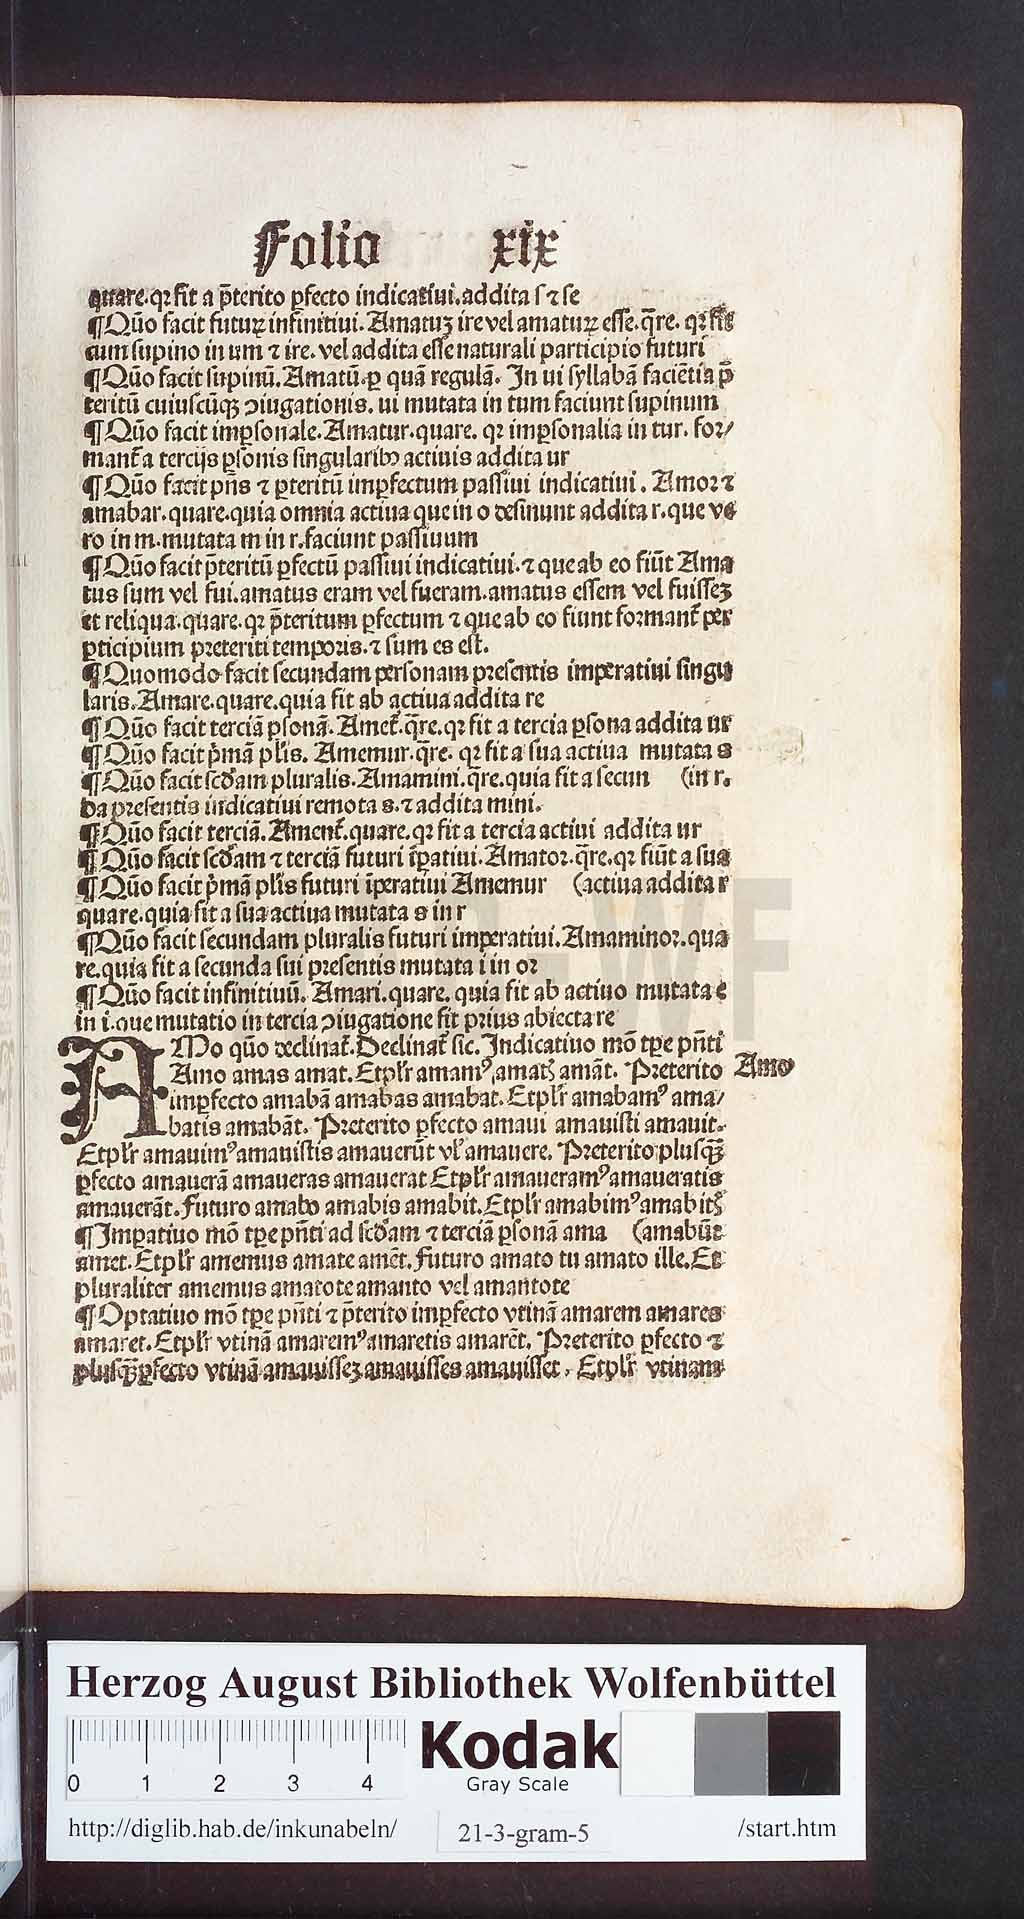 Folio xix
quare.qꝛ fit a p̄terito ꝑfecto indicatiui.addita ſ ⁊ ſe
¶ Quō facit futuꝝ infinitiui. Amatuꝫ ire vel amatuꝝ eſſe. q̄re. qꝛ fit
cum ſupino in um ⁊ ire. vel addita eſſe naturali participio futuri
¶ Quō facit ſupinū. Amatū. ꝑ quā regulā. In ui ſyllabā faciētia p̄
teritū cuiuſcūqꝫ ↄiugationis. ui mutata in tum faciunt ſupinum
¶ Quō facit imꝑſonale. Amatur. quare. qꝛ imꝑſonalia in tur. for⸗
mant̄ a tercijs ꝑſonis ſingularibꝰ actiuis addita ur
¶ Quō facit pn̄s ⁊ ꝑteritū imꝑfectum paſſiui indicatiui. Amoꝛ ⁊
amabar. quare. quia omnia actiua que in o deſinunt addita r. que ve
ro in m. mutata m in r. faciunt paſſiuum
¶ Quō facit p̄teritū ꝑfectū paſſiui indicatiui. ⁊ que ab eo fiūt Ama
tus ſum vel fui. amatus eram vel fueram. amatus eſſem vel fuiſſeꝫ
et reliqua. quare. qꝛ p̄teritum ꝑfectum ⁊ que ab eo fiunt foꝛmant̄ per
ꝑticipium preteriti tempoꝛis. ⁊ ſum es eſt.
¶ Quomodo facit ſecundam perſonam preſentis imperatiui ſingu
laris. Amare. quare. quia fit ab actiua addita re
¶ Quō facit terciā ꝑſonā. Amet̄. q̄re. qꝛ fit a tercia ꝑſona addita ur
¶ Quō facit p̄mā pl̄is. Amemur. q̄re. qꝛ fit a ſua actiua mutata s
¶ Quō facit ſcd̄am pluralis. Amamini. q̄re. quia fit a ſecun (in r.
da preſentis indicatiui remota s. ⁊ addita mini.
¶ Quō facit terciā. Ament̄. quare. qꝛ fit a tercia actiui addita ur
¶ Quō facit ſcd̄am ⁊ terciā futuri īꝑatiui. Amatoꝛ. q̄re. qꝛ fiūt a ſua
¶ Quō facit p̄mā pl̄is futuri īperatiui Amemur (actiua addita r
quare. quia fit a ſua actiua mutata s in r
¶ Quō facit ſecundam pluralis futuri imperatiui. Amaminoꝛ. qua
re. quia fit a ſecunda ſui preſentis mutata i in oꝛ
¶ Quō facit infinitiuū. Amari. quare. quia fit ab actiuo mutata e
in i. que mutatio in tercia ↄiugatione fit prius abiecta re
AMo quō declinat̄. Declinat̄ ſic. Indicatiuo mō tꝑe pn̄ti
Amo amas amat. Et pl̄r amamꝰ amatꝭ amāt. Preterito
imꝑfecto amabā amabas amabat. Et pl̄r amabamꝰ ama⸗
batis amabāt. Preterito ꝑfecto amaui amauiſti amauit.
Et pl̄r amauimꝰ amauiſtis amauerūt vl̓ amauere. Preterito pluſqꝫ̄
ꝑfecto amauerā amaueras amauerat Et pl̄r amaueramꝰ amaueratis
amauerāt. Futuro amabo amabis amabit. Et pl̄r amabimꝰ amabitꝭ
¶ Imꝑatiuo mō tꝑe pn̄ti ad ſcd̄am ⁊ terciā ꝑſonā ama (amabūt
amet. Et pl̄r amemus amate amēt. Futuro amato tu amato ille. Et
pluraliter amemus amatote amanto vel amantote
¶ Optatiuo mō tꝑe pn̄ti ⁊ p̄terito imꝑfecto vtinā amarem amares
amaret. Et pl̄r vtinā amaremꝰ amaretis amarēt. Preterito ꝑfecto ⁊
pluſqꝫ̄ꝑfecto vtinā amauiſſeꝫ amauiſſes amauiſſet. Et pl̄r vtinam
Amo
HAB WF
Herzog August Bibliothek Wolfenbüttel
0 1 2 3 4
Kodak
Gray Scale
http://diglib.hab.de/inkunabeln/ 21-3-gram-5 /start.htm